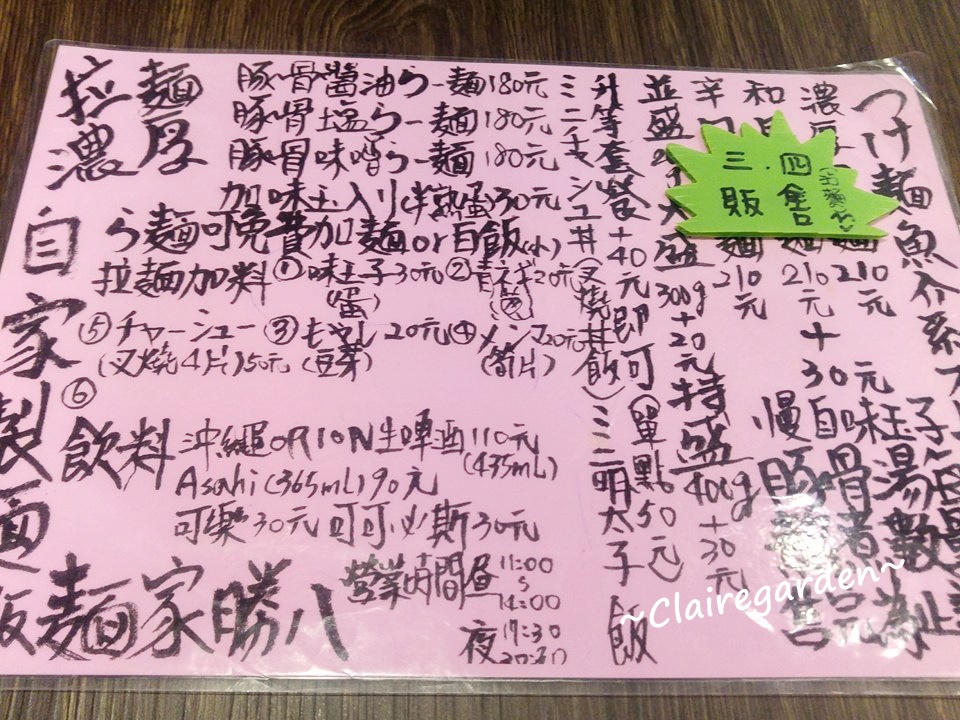 拉麵
濃厚
豚骨醬油らー麺180元
豚骨塩らー麺180元
豚骨味噌らー麺180元
加味玉入り(半熟蛋)30元
ら麺可免費加麺or白飯(小)
拉麺加料①味玉子30元②青ネギ20元
(蛋)
(蔥)
⑤チャーシュー③もやし20元④メンマ20元
(叉燒4片)50元(豆芽)
(筍片)
⑥
飲料
沖繩ORION生啤酒110元
(435mL)
Asahi(365mL)90元
可樂30元可可必斯30元
自家製麵
麺家勝八
營業時間昼11:00
14:00
夜17:30
20:30
つけ麺魚介系
濃厚
麺210元
和
麺210元
+30元
辛
麺210元
味玉子
豚骨湯
並盛
大盛300g+20元
特盛400g+30元
升等套餐+40元即可
單點50元
ミニチャーシュー丼(叉燒丼飯)
ミニ明太子飯
三.四
販售
~Clairegarden~